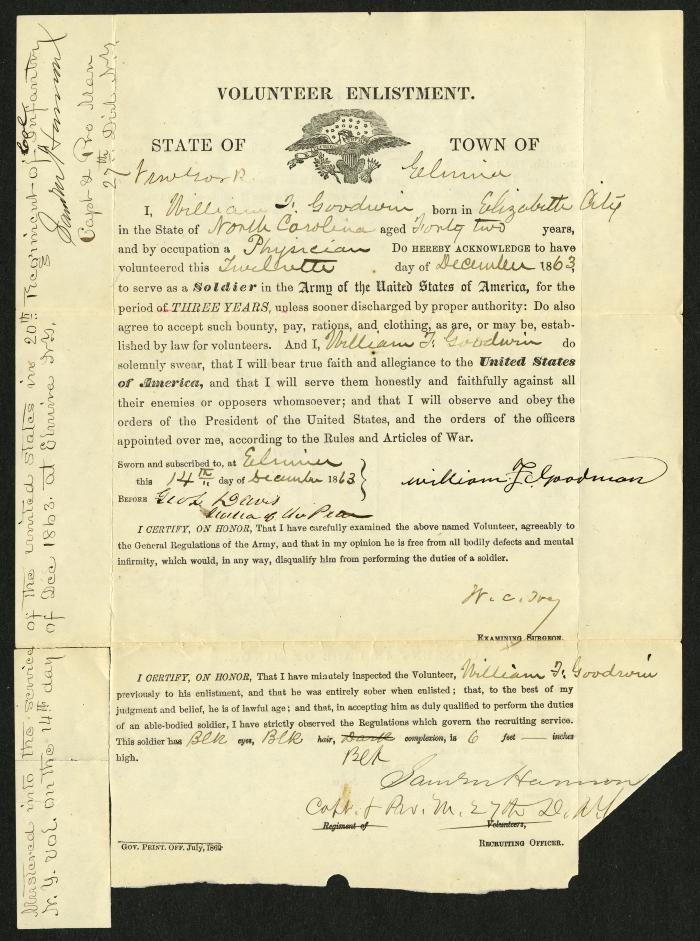 VOLUNTEER ENLISTMENT.
STATE OF TOWN OF
New York Elmira
I, William F. Goodwin born in Elizabeth City
in the State of North Carolina aged Forty two years,
and by occupation a Physician Do HEREBY ACKNOWLEDGE to have
volunteered this day of December 1863,
to serve as a Soldier in the Army of the United States of America, for the
period of THREE YEARS, unless sooner discharged by proper authority: Do also
agree to accept such bounty, pay, rations, and clothing, as are, or may be, estab-
lished by law for volunteers. And I, William F. Goodwin do
solemnly swear, that I will bear true faith and allegiance to the United States
of America, and that I will serve them honestly and faithfully against all
their enemies or opposers whomsoever; and that I will observe and obey the
orders of the President of the United States, and the orders of the officers
appointed over me, according to the Rules and Articles of War.
Sworn and subscribed to, at Elmira
this 14th day of December 1863
BEFORE
William F. Goodman
I CERTIFY, ON HONOR, That I have carefully examined the above named Volunteer, agreeably to
the General Regulations of the Army, and that in my opinion he is free from all bodily defects and mental
infirmity, which would, in any way, disqualify him from performing the duties of a soldier.
W. C.
EXAMINING SURGEON.
I CERTIFY, ON HONOR, That I have minutely inspected the Volunteer, William F. Goodwin
previously to his enlistment, and that he was entirely sober when enlisted; that, to the best of my
judgment and belief, he is of lawful age; and that, in accepting him as duly qualified to perform the duties
of an able-bodied soldier, I have strictly observed the Regulations which govern the recruiting service.
This soldier has Blk eyes, Blk hair, Dark complexion, is 6 feet — inches
high. Blk
Saml M Harmon
Capt. & Pro. M. 27th D. NY
Regiment of Volunteers,
RECRUITING OFFICER.
GOV. PRINT. OFF. July, 1862
Mustered into the service of the United States in 20th Regiment of Col Infantry
N.Y. Vol on the 14th day of Dec 1863. at Elmira N.Y.
Samn M Harmon
Capt & Pro Mar
27th Dist N.Y.